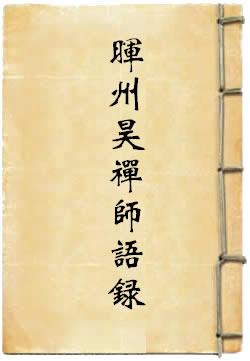 暉州昊禪師語録